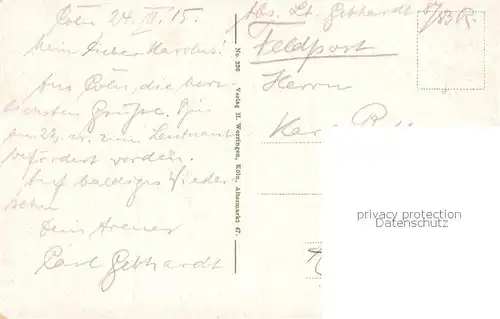 Cöln 24. III. 15.
Mein lieber Markus!
Aus Cöln, die herz-
lichsten Grüße. Bin
am zum Leutnant
befördert worden.
Auf baldiges Wieder-
sehen
Dein
Carl Gebhardt
No. 236 Verlag H. Worringen, Köln, Altermarkt 47.
Abs. Lt. Gebhardt 83 R.
Feldpost
Herrn
privacy protection
DARABANTH.COM